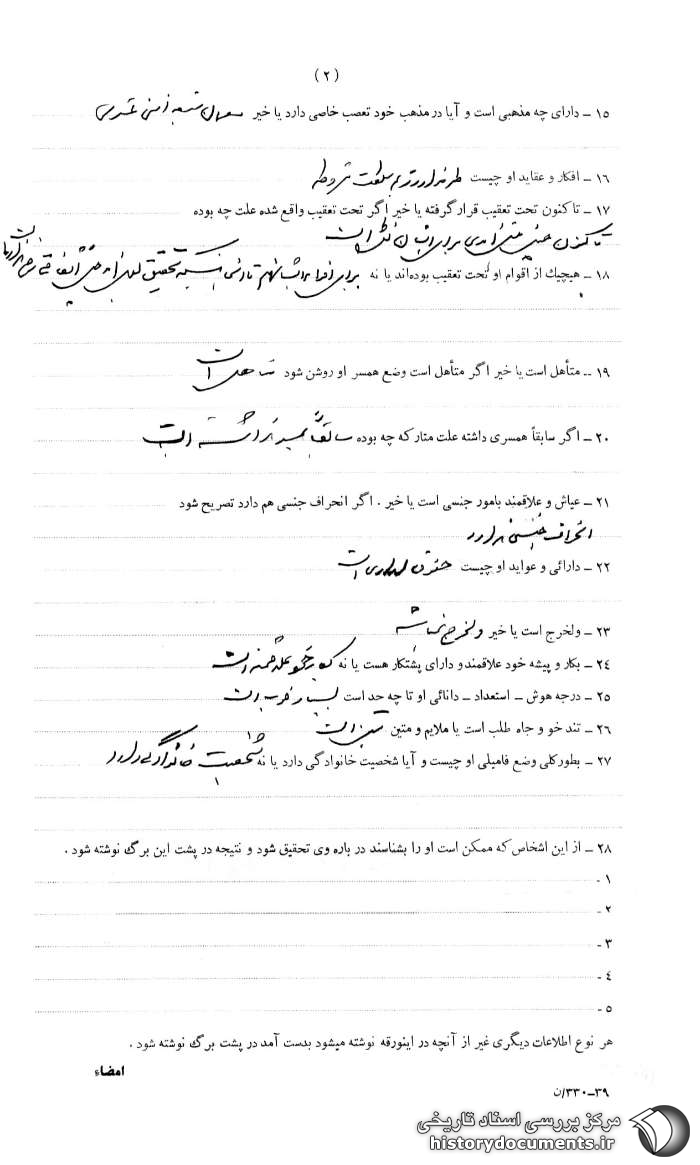 (۲)
۱۵ ــ دارای چه مذهبی است و آیا در مذهب خود تعصب خاصی دارد یا خیر
۱۶ ــ افکار و عقاید او چیست طرفدار رژیم سلطنت مشروطه
۱۷ ــ تاکنون تحت تعقیب قرار گرفته یا خیر اگر تحت تعقیب واقع شده علت چه بوده
تاکنون چنین برای ایشان است
۱۸ ــ هیچیك از اقوام او تحت تعقیب بوده‌اند یا نه برای تحقیق
۱۹ ــ متأهل است یا خیر اگر متأهل است وضع همسر او روشن شود متاهل است
۲۰ ــ اگر سابقاً همسری داشته علت متارکه چه بوده سابقاً همسر نداشته است
۲۱ ــ عیاش و علاقمند بامور جنسی است یا خیر . اگر انحراف جنسی هم دارد تصریح شود
انحراف جنسی ندارد
۲۲ ــ دارائی و عواید او چیست حقوق است
۲۳ ــ ولخرج است یا خیر ولخرج نمیباشد
۲٤ ــ بکار و پیشه خود علاقمند و دارای پشتکار هست یا نه بکار خود علاقمند است
۲۵ ــ درجه هوش ــ استعداد ــ دانائی او تا چه حد است بسیار خوب است
۲۶ ــ تند خو و جاه طلب است یا ملایم و متین متین است
۲۷ ــ بطور کلی وضع فامیلی او چیست و آیا شخصیت خانوادگی دارد یا نه شخصیت خانوادگی دارد
۲۸ ــ از این اشخاص که ممکن است او را بشناسند در باره وی تحقیق شود و نتیجه در پشت این برگ نوشته شود .
۱ -
۲ -
۳ -
٤ -
۵ -
هر نوع اطلاعات دیگری غیر از آنچه در اینورقه نوشته میشود بدست آمد در پشت برگ نوشته شود .
امضاء
۳۹–۳۳۰/ن
مرکز بررسی اسناد تاریخی
historydocuments.ir